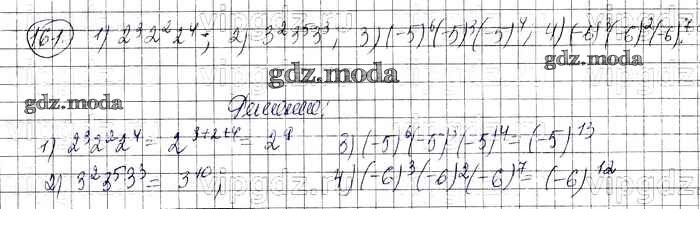 161. 1) 2³2²2⁴; 2) 3²3⁵3³, 3) (-5)⁶(-5)³(-5)⁴, 4) (-6)³(-6)²(-6)⁷
gdz.moda
gdz.moda
gdz.moda
1) 2³2²2⁴ = 2³⁺²⁺⁴ = 2⁹ 3) (-5)⁶(-5)³(-5)⁴ = (-5)¹³
2) 3²3⁵3³ = 3¹⁰, 4) (-6)³(-6)²(-6)⁷ = (-6)¹²
vipgdz.ru